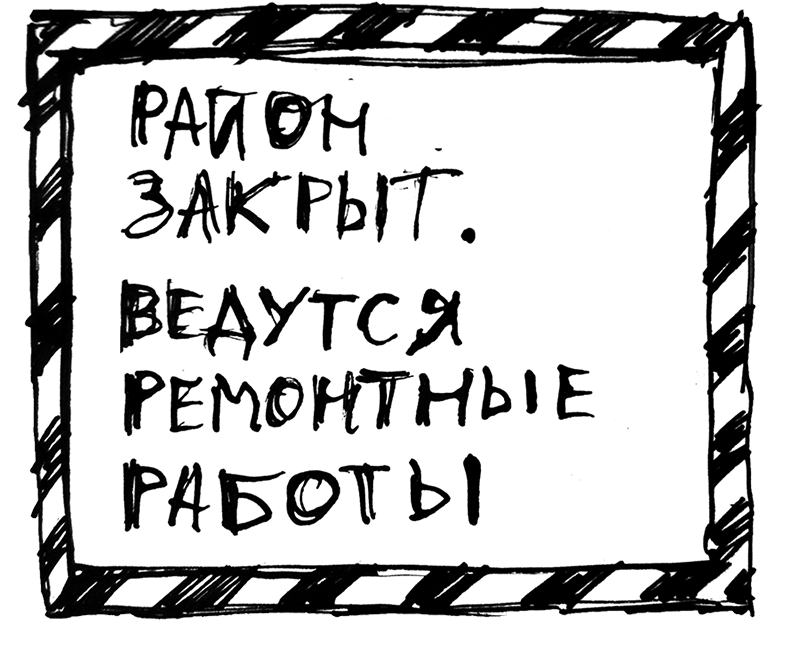 РАЙОН
ЗАКРЫТ.
ВЕДУТСЯ
РЕМОНТНЫЕ
РАБОТЫ